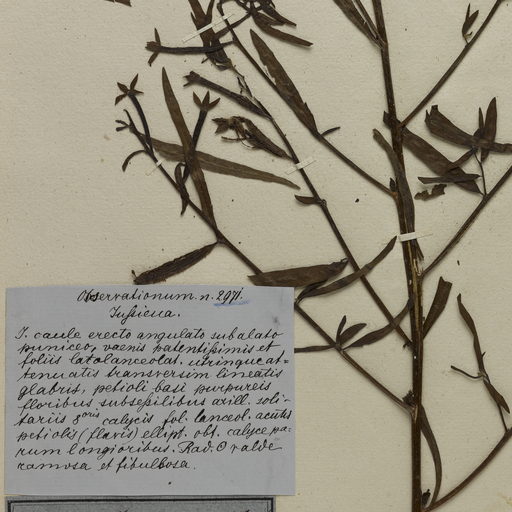 Observationum. n. 2971.
Jussieua.
J. caule erecto angulato subalato
puniceo, patentissimis et
foliis lat. olanceolat. utrinque at-
tenuatis transversim lineatis
glabris, petioli basi purpureis
floribus subsessilibus axill. soli-
tariis calycis fol. lanceol. acutis
petiolis (flavis) ellipt. obt. calyce pa-
rum longioribus. Rad. valde
ramosa et fibulbosa.